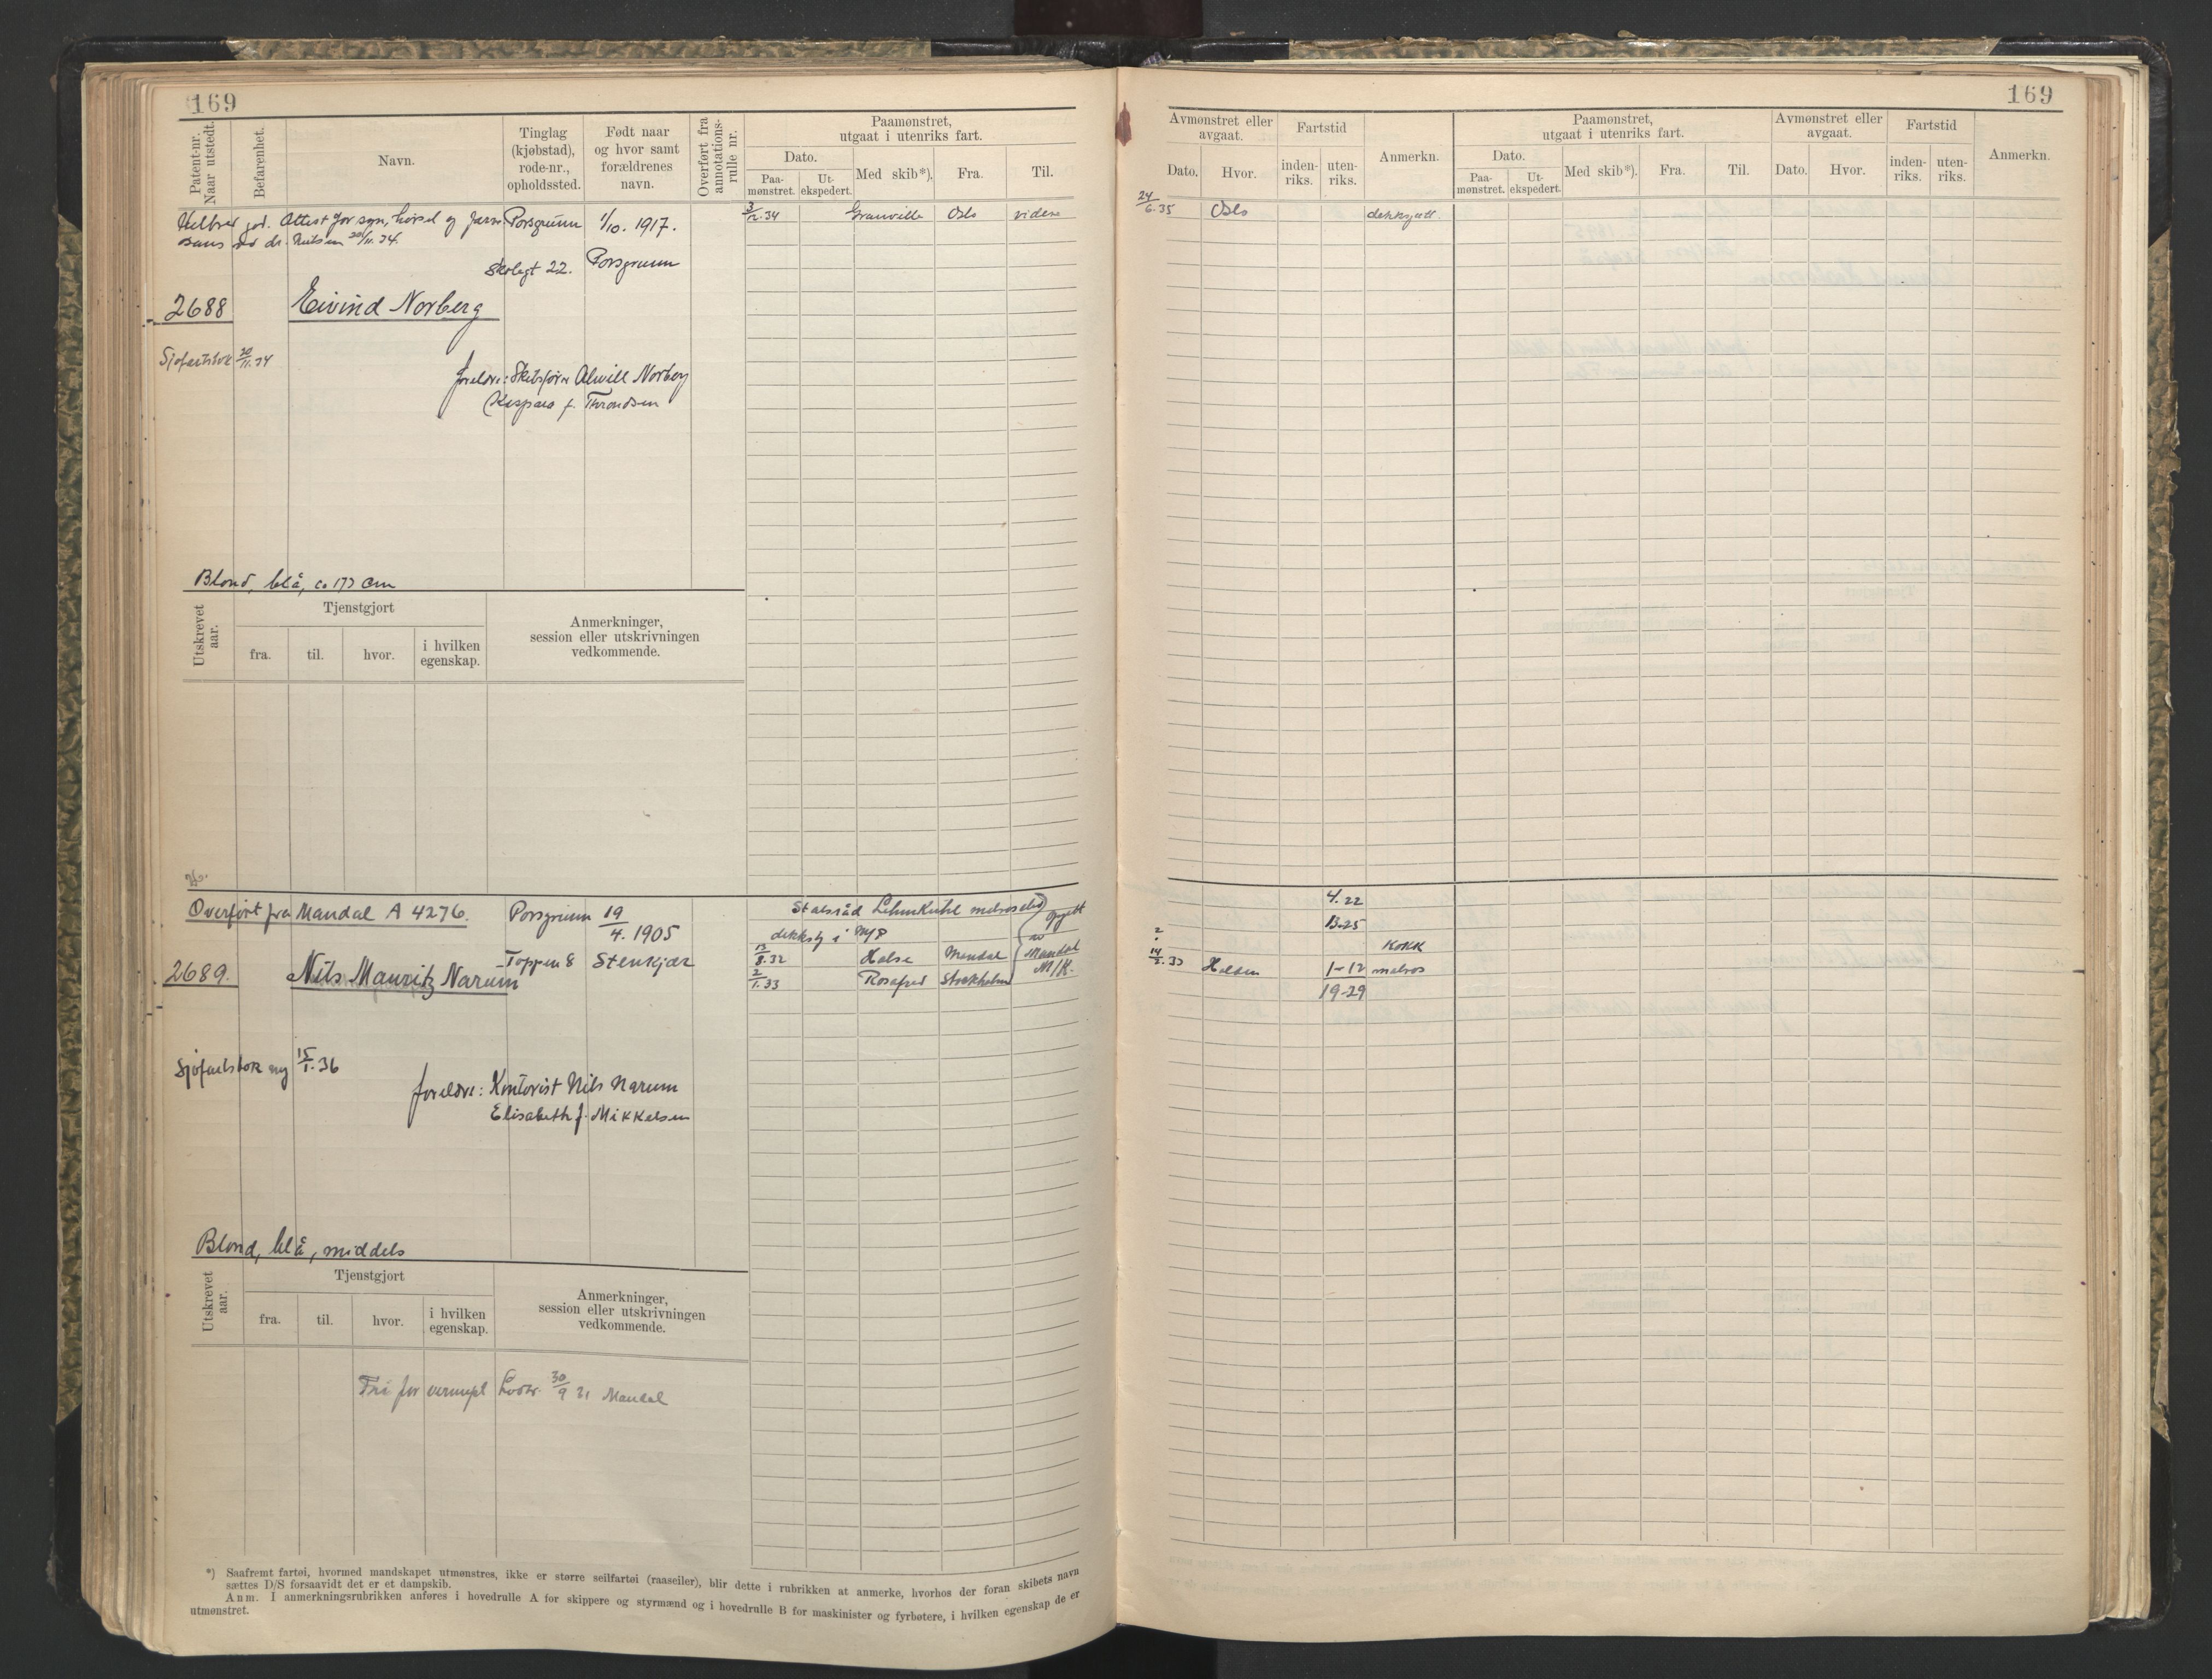 169
Patent-nr. Naar utstedt.
Befarenhet.
Navn.
Tinglag (kjøbstad), rode-nr., opholdssted.
Født naar og hvor samt forældrenes navn.
Overført fra annotationsrulle nr.
Paamønstret, utgaat i utenriks fart.
Dato.
Paa-mønstret.
Ut-ekspedert.
Med skib*).
Fra.
Til.
Helbred god. Attest for syn, hørsel og farve
sans ved dr. Nilsen 20/11.34.
Porsgrunn
1/10. 1917.
3/12.34 Granville Oslo videre
Skolegt 22.
Porsgrunn
2688
Eivind Norberg
Sjøfartsbok 20/11.34
foreldre: Skibsfører Alwill Norberg
Kaspara f. Throndsen
Blond, blå, ca 173 cm
Utskrevet aar.
Tjenstgjort
fra.
til.
hvor.
i hvilken egenskap.
Anmerkninger,
session eller utskrivningen
vedkommende.
Overført fra Mandal A 4276.
Porsgrunn
19/4. 1905
Statsråd Lehmkuhl
dekksg i M/S
Opgitt
av
Mandal
M/K.
2689.
Nils Mauritz Narum
Toppen 8
Stenkjær
13/8.32 Halse Mandal
2/1.33 Rosafred Stockholm
Sjøfartsbok ny 15/1.36
foreldre: Kontorist Nils Narum
Elisabeth f. Mikkelsen
Blond, blå, middels
Utskrevet aar.
Tjenstgjort
fra.
til.
hvor.
i hvilken egenskap.
Anmerkninger,
session eller utskrivningen
vedkommende.
Fri for vernepl 30/9 31 Mandal
*) Saafremt fartøi, hvormed mandskapet utmønstres, ikke er større seilfartøi (raaseiler), blir dette i rubrikken at anmerke, hvorhos der foran skibets navn
sættes D/S forsaavidt det er et dampskib.
Anm. I anmerkningsrubrikken anføres i hovedrulle A for skippere og styrmænd og i hovedrulle B for maskinister og fyrbøtere, i hvilken egenskap de er
utmønstret.
169
Avmønstret eller avgaat.
Dato.
Hvor.
Fartstid
inden-riks.
uten-riks.
Anmerkn.
Paamønstret, utgaat i utenriks fart.
Dato.
Paa-mønstret.
Ut-ekspedert.
Med skib*).
Fra.
Til.
Avmønstret eller avgaat.
Dato.
Hvor.
Fartstid
inden-riks.
uten-riks.
Anmerkn.
24/6.35 Oslo dekksgutt
4.22
13.25
kokk
Halden 1-12 matros
19-29